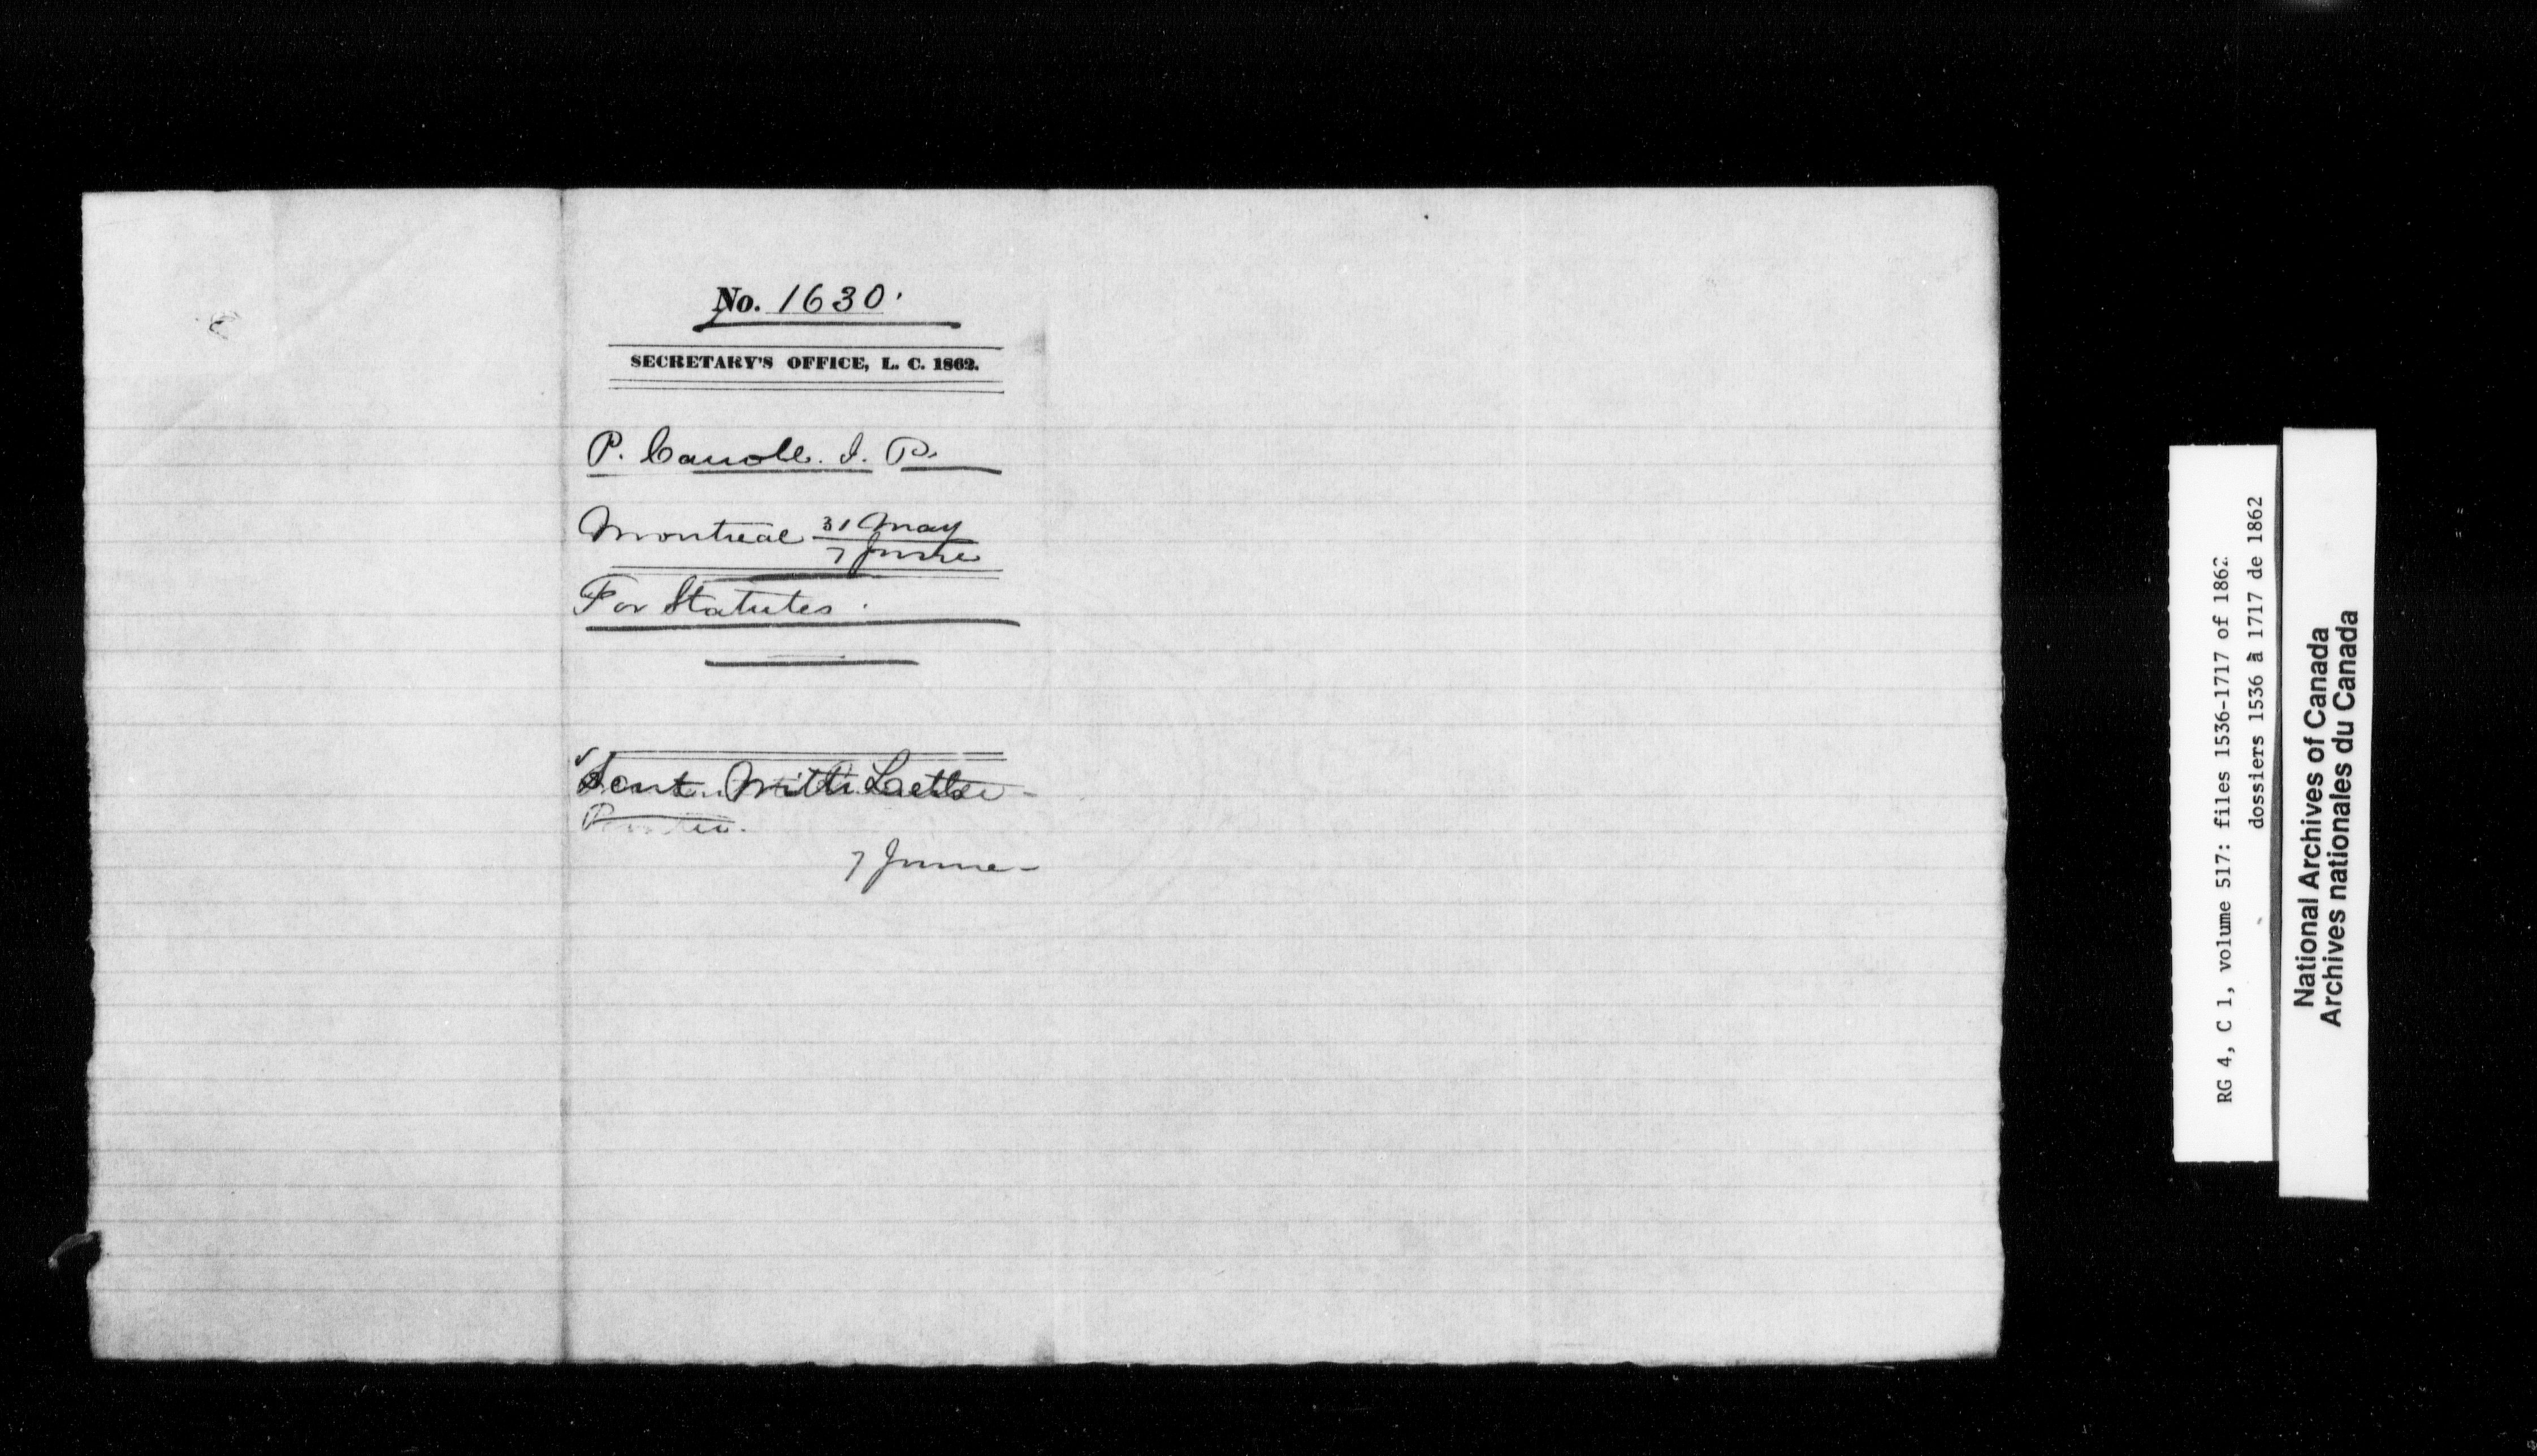 No. 1630.
SECRETARY'S OFFICE, L. C. 1862.
P. Carroll. J. P.
Montreal 31 May
7 June
For Statutes.
Sent With Letter
7 June
RG 4, C 1, volume 517: files 1536-1717 of 1862
dossiers 1536 à 1717 de 1862
National Archives of Canada
Archives nationales du Canada